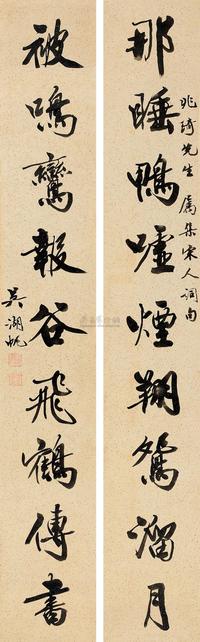 那睡鴨噓煙翔鴛溜月
兆琦先生屬集宋人詞句
被鳴鸞報谷飛鶴傳書
吳湖帆